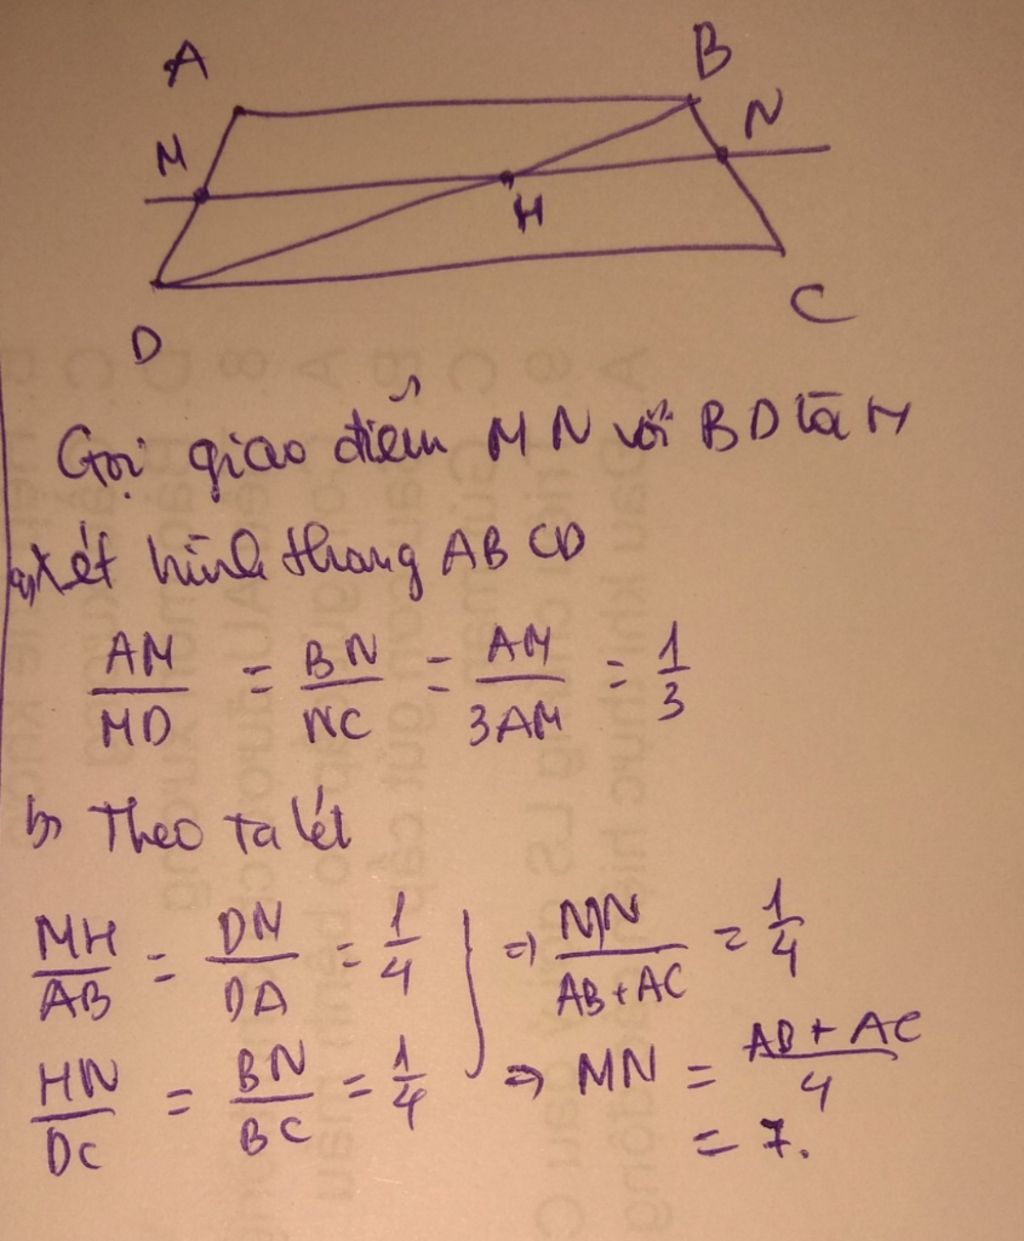 A
B
M
N
H
D
C
Gọi giao điểm MN với BD là H
a, Xét hình thang ABCD
AM/MD = BN/NC = AM/3AM = 1/3
b, Theo ta lét
MH/AB = DM/DA = 1/4 } => MN/AB+AC = 1/4
HN/DC = BN/BC = 1/4 => MN = AB+AC/4
= 7.